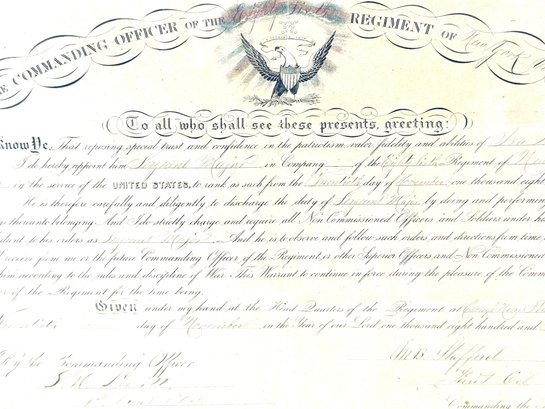 E COMMANDING OFFICER OF THE REGIMENT OF New York
To all who shall see these presents, greeting:
Know Ye, That reposing special trust and confidence in the patriotism, valor, fidelity and abilities of
I do hereby appoint him Sergeant Major in Company of the Regiment of
in the service of the UNITED STATES, to rank as such from the Twentieth day of November one thousand eight
He is therefore carefully and diligently to discharge the duty of Sergeant Major by doing and performing
thereunto belonging. And I do strictly charge and require all Non Commissioned Officers and Soldiers under his
dient to his orders as Sergeant Major. And he is to observe and follow such orders and directions from time
receive from me, or the future Commanding Officer of the Regiment, or other Superior Officers and Non Commissioned
him according to the rules and discipline of War. This Warrant to continue in force during the pleasure of the Comm
er of the Regiment for the time being.
Given under my hand at the Head Quarters of the Regiment at Camp
day of November in the Year of our Lord one thousand eight hundred and
By the Commanding Officer
Lieut Col
Commanding the